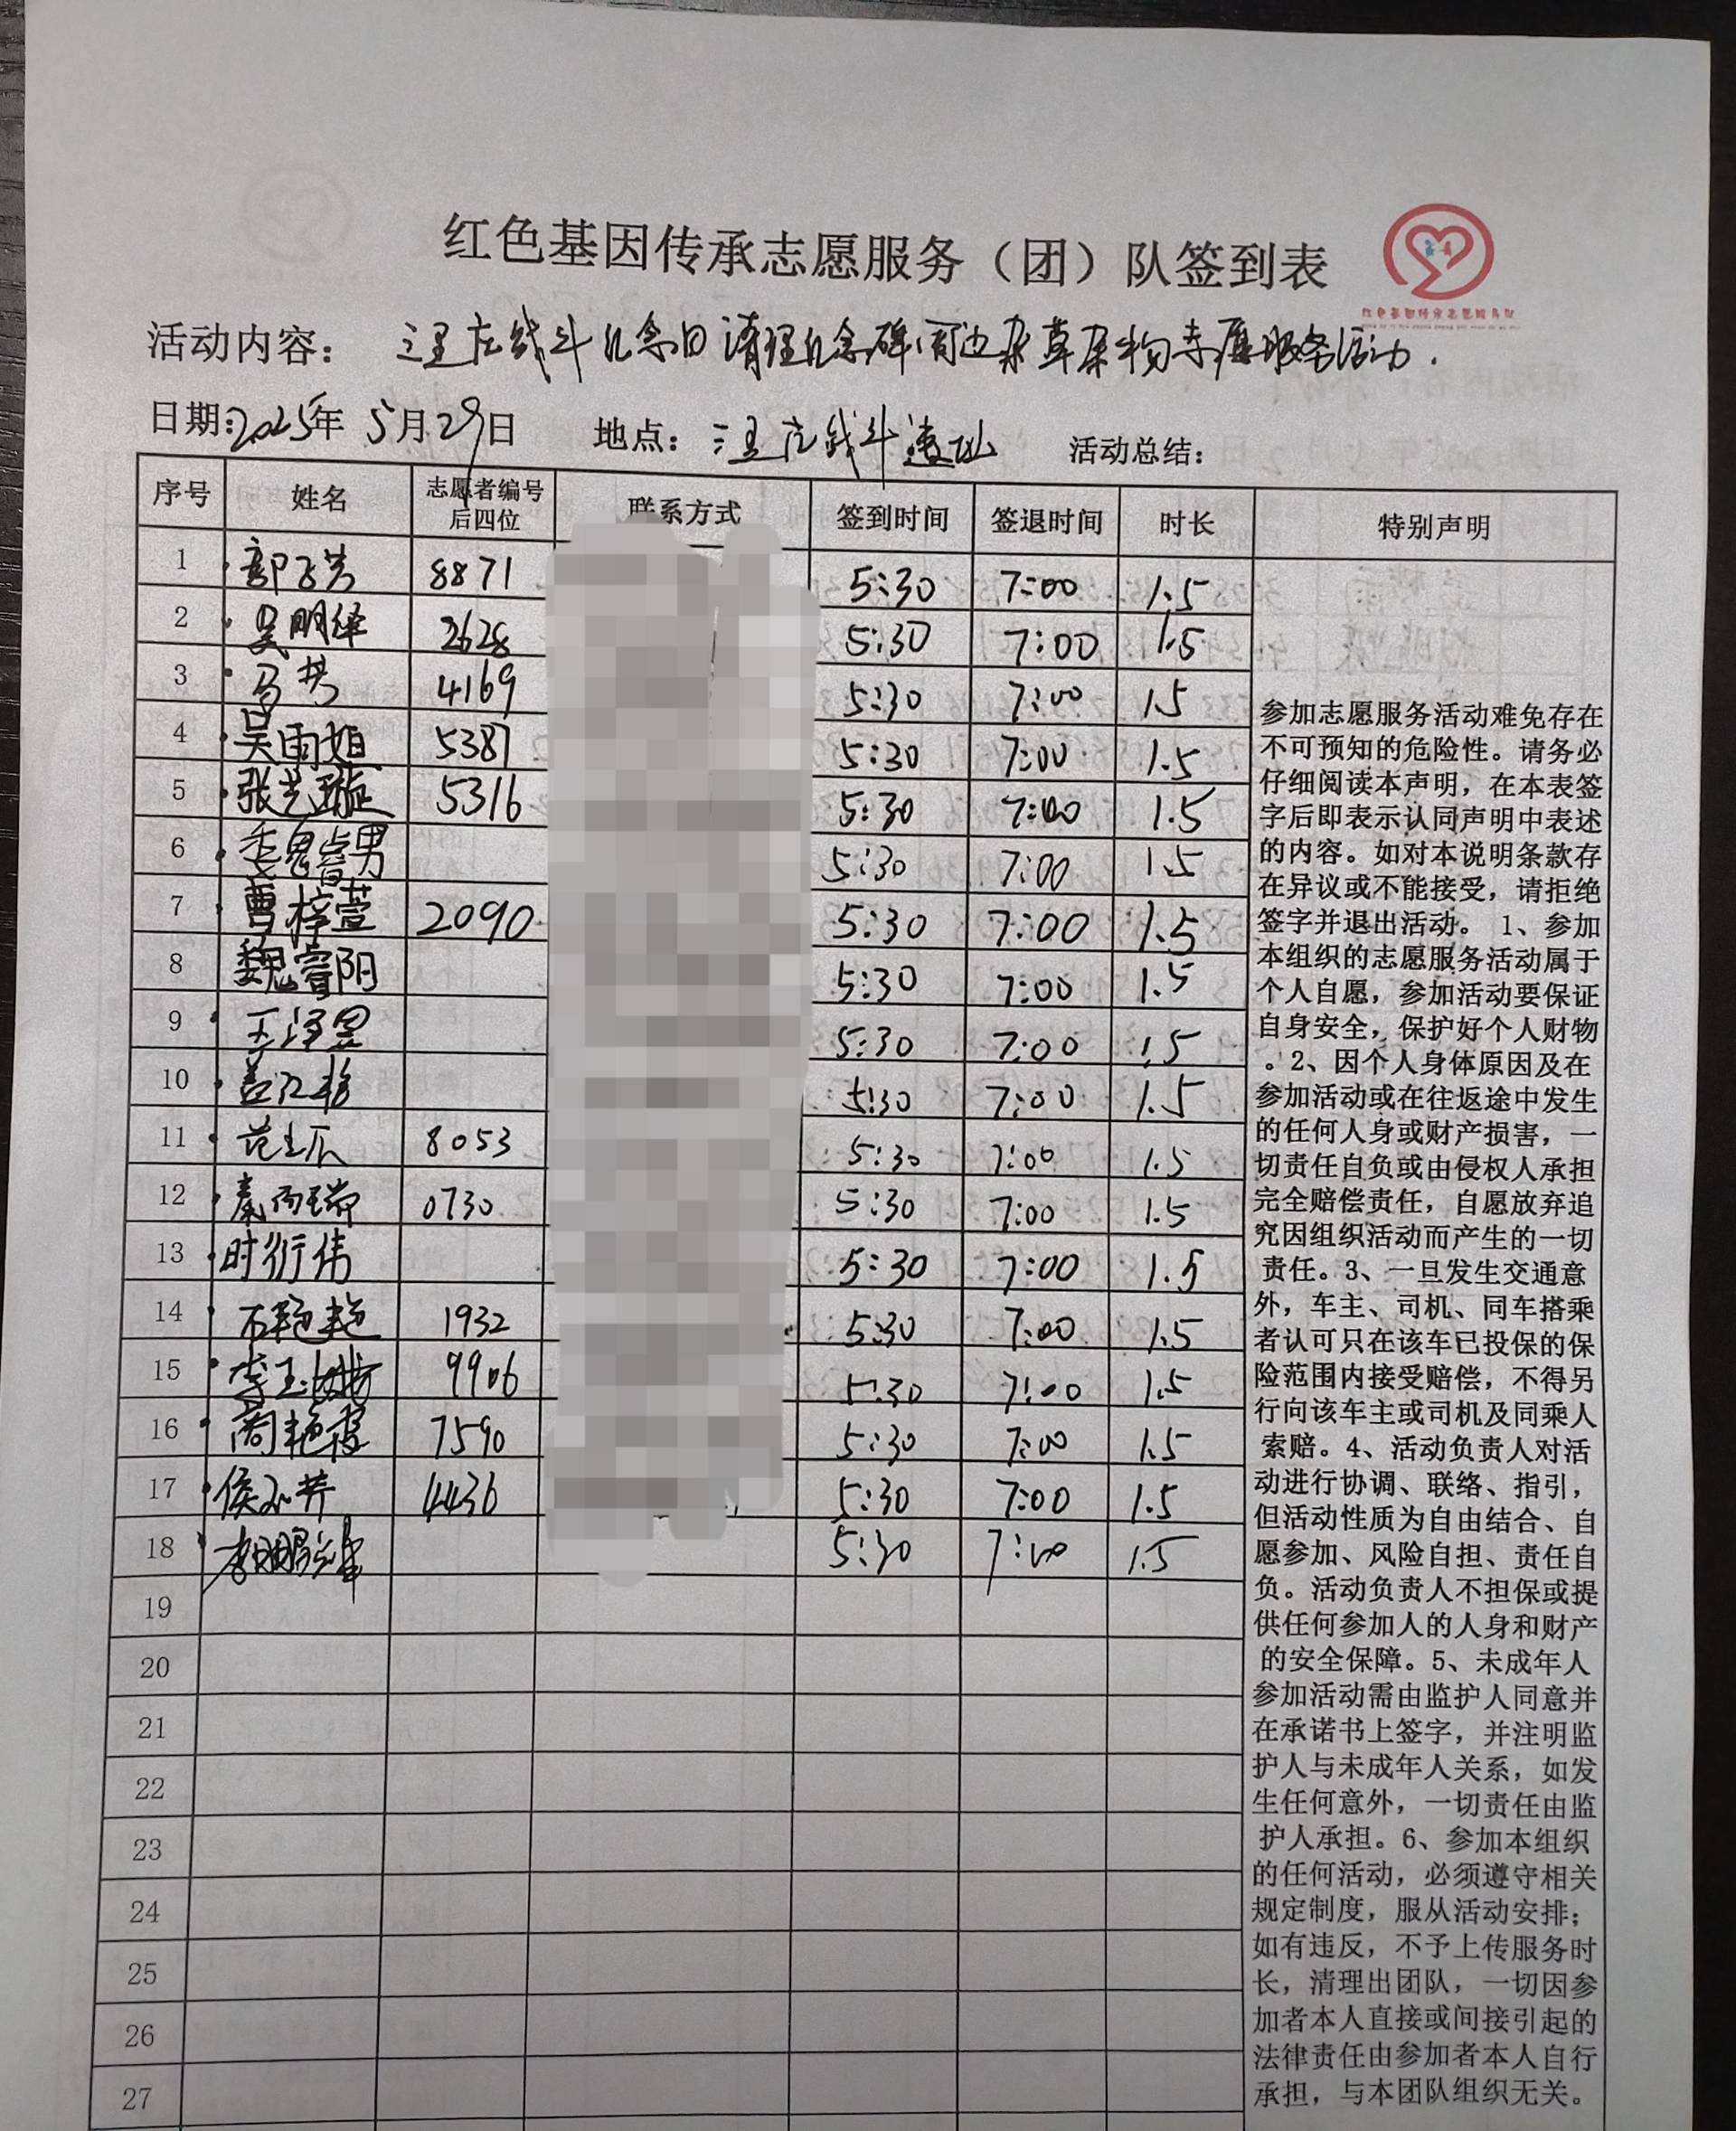 红色基因传承志愿服务（团）队签到表
活动内容： 三里庄战斗纪念日清理纪念碑周边杂草杂物志愿服务活动.
日期:2025年 5月29日 地点：三里庄战斗遗址 活动总结：
序号 姓名 志愿者编号后四位 联系方式 签到时间 签退时间 时长 特别声明
1 8871 5:30 7:00 1.5
2 2628 5:30 7:00 1.5
3 4169 5:30 7:00 1.5
4 吴雨姐 5387 5:30 7:00 1.5
5 张艺璇 5316 5:30 7:00 1.5
6 魏睿男 5:30 7:00 1.5
7 曹梓萱 2090 5:30 7:00 1.5
8 魏睿阳 5:30 7:00 1.5
9 王泽昱 5:30 7:00 1.5
10 5:30 7:00 1.5
11 8053 5:30 7:00 1.5
12 秦雨瑞 0730 5:30 7:00 1.5
13 时衍伟 5:30 7:00 1.5
14 石艳艳 1932 5:30 7:00 1.5
15 李玉娥 9906 5:30 7:00 1.5
16 商艳霞 7590 5:30 7:00 1.5
17 4436 5:30 7:00 1.5
18 5:30 7:00 1.5
19
20
21
22
23
24
25
26
27
参加志愿服务活动难免存在
不可预知的危险性。请务必
仔细阅读本声明，在本表签
字后即表示认同声明中表述
的内容。如对本说明条款存
在异议或不能接受，请拒绝
签字并退出活动。 1、参加
本组织的志愿服务活动属于
个人自愿，参加活动要保证
自身安全，保护好个人财物
。2、因个人身体原因及在
参加活动或在往返途中发生
的任何人身或财产损害，一
切责任自负或由侵权人承担
完全赔偿责任，自愿放弃追
究因组织活动而产生的一切
责任。3、一旦发生交通意
外，车主、司机、同车搭乘
者认可只在该车已投保的保
险范围内接受赔偿，不得另
行向该车主或司机及同乘人
索赔。4、活动负责人对活
动进行协调、联络、指引，
但活动性质为自由结合、自
愿参加、风险自担、责任自
负。活动负责人不担保或提
供任何参加人的人身和财产
的安全保障。5、未成年人
参加活动需由监护人同意并
在承诺书上签字，并注明监
护人与未成年人关系，如发
生任何意外，一切责任由监
护人承担。6、参加本组织
的任何活动，必须遵守相关
规定制度，服从活动安排；
如有违反，不予上传服务时
长，清理出团队，一切因参
加者本人直接或间接引起的
法律责任由参加者本人自行
承担，与本团队组织无关。